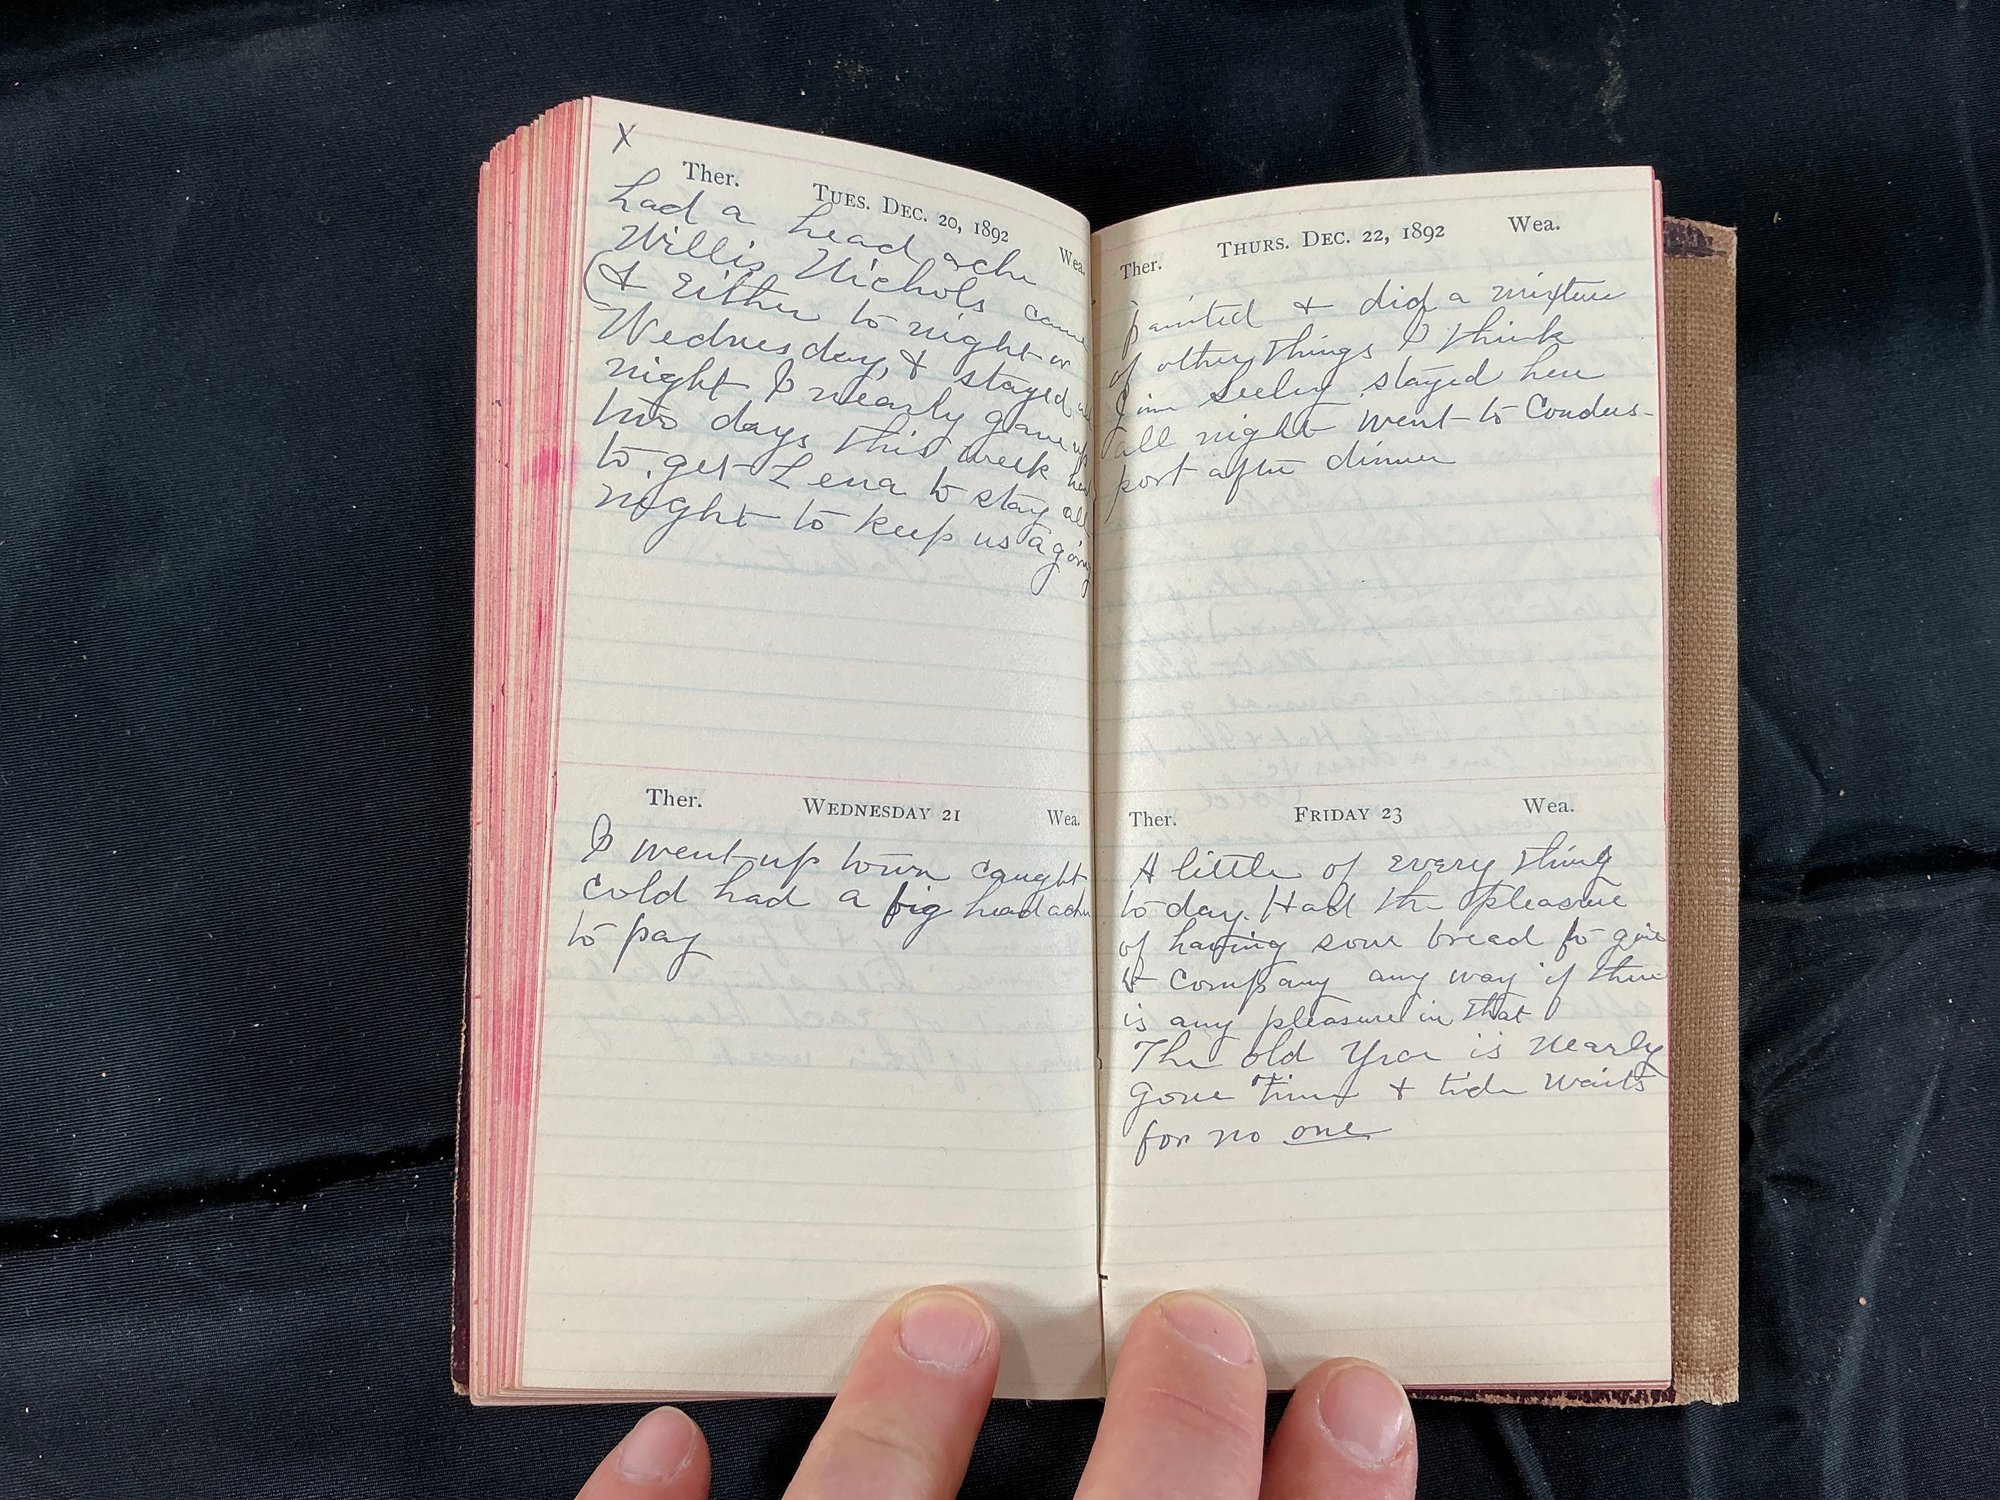 X
Ther. TUES. DEC. 20, 1892 Wea.
had a head ache
Willis Nichols came
(& Either to night or
Wednesday, & stayed all
night I nearly gave up
two days this week had
to get Lena to stay all
night to keep us agoing
Ther. WEDNESDAY 21 Wea.
I went up town caught
cold had a big head ache
to pay
Ther. THURS. DEC. 22, 1892 Wea.
painted & did a mixture
of other things I think
Jim Seeley stayed here
all night went to Couders-
port after dinner
Ther. FRIDAY 23 Wea.
A little of every thing
to day. Had the pleasure
of having sour bread to give
to company any way if there
is any pleasure in that
The old Year is nearly
gone Time & tide waits
for no one